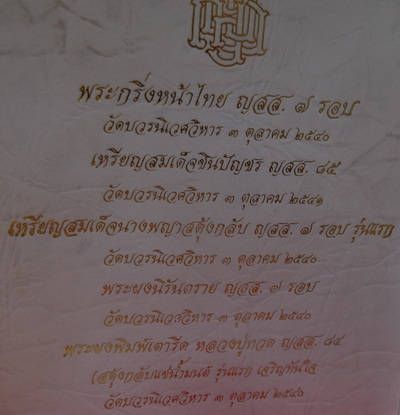 พระกริ่งหน้าไทย ญสส. ๗ รอบ
วัดบวรนิเวศวิหาร ๓ ตุลาคม ๒๕๔๐
เหรียญสมเด็จชินปัญชร ญสส. ๘๕
วัดบวรนิเวศวิหาร ๓ ตุลาคม ๒๕๔๑
เหรียญสมเด็จนางพญาสดุ้งกลับ ญสส. ๗ รอบ รุ่นแรก
วัดบวรนิเวศวิหาร ๓ ตุลาคม ๒๕๔๐
พระผงนิรันตราย ญสส. ๗ รอบ
วัดบวรนิเวศวิหาร ๓ ตุลาคม ๒๕๔๐
พระผงพิมพ์เตารีด หลวงปู่ทวด ญสส. ๘๔
(สดุ้งกลับแช่น้ำมนต์ รุ่นแรก เจริญทันใจ
วัดบวรนิเวศวิหาร ๓ ตุลาคม ๒๕๔๐